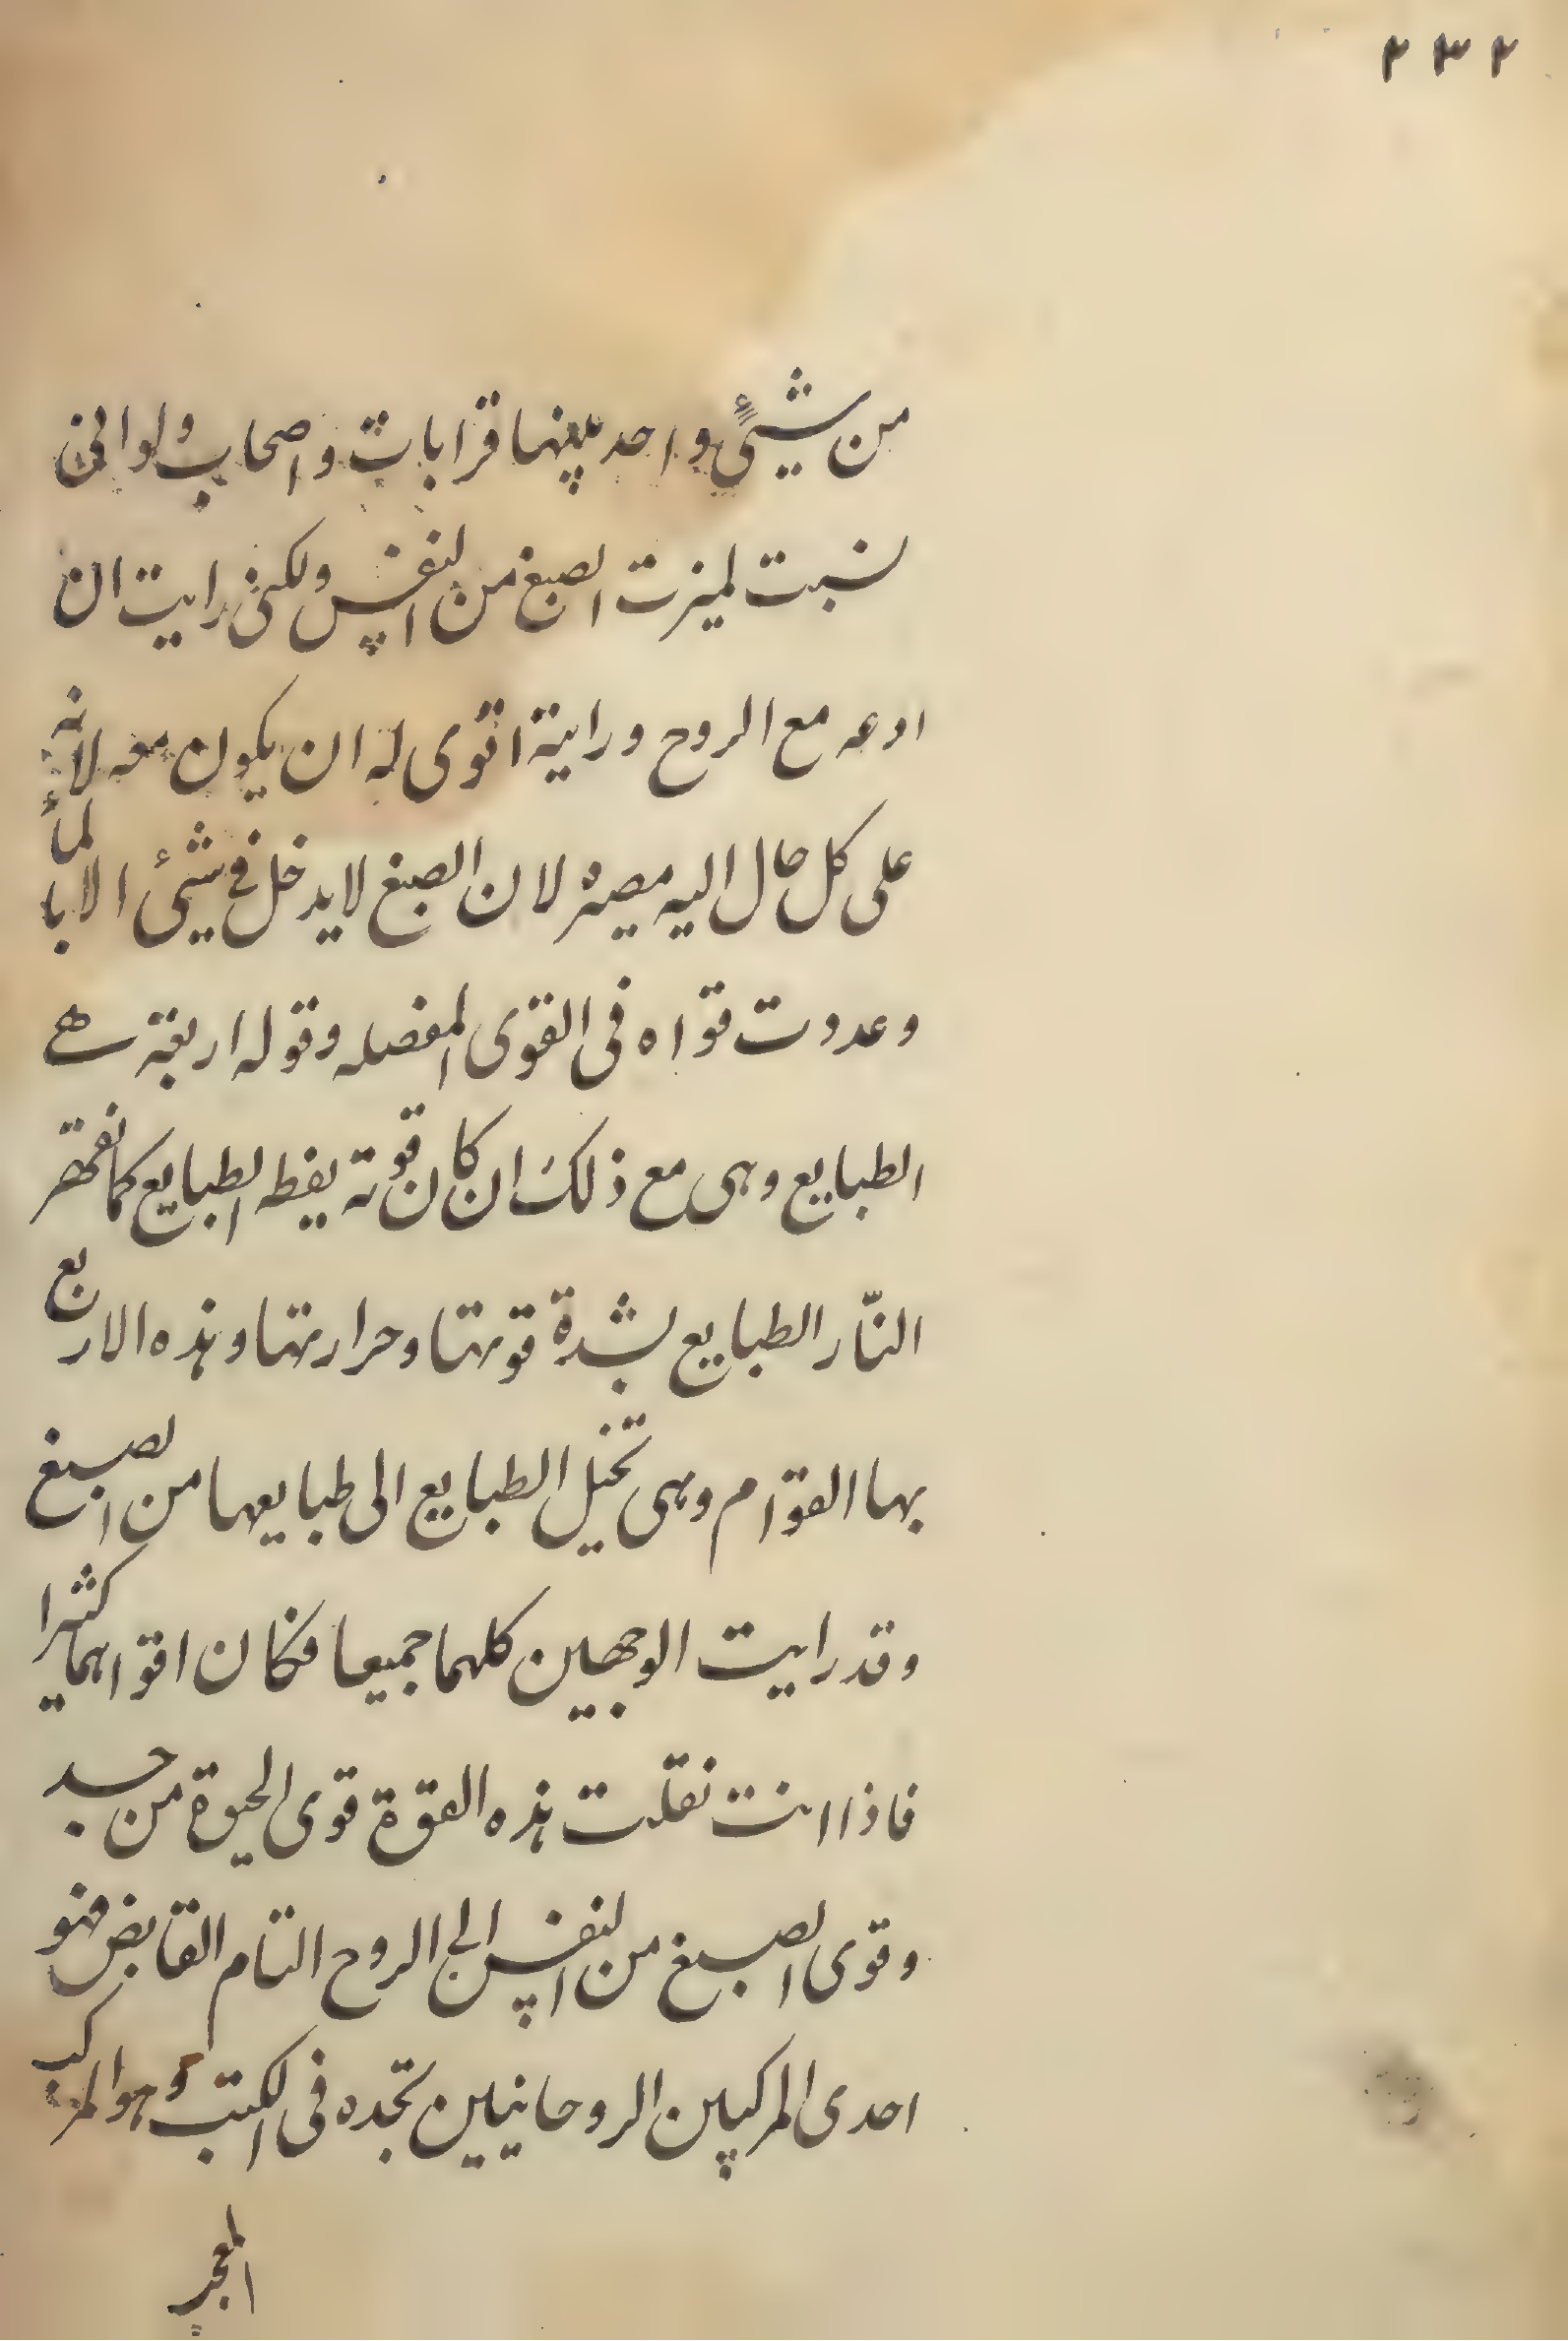 ٢٣٢
من شيئٍ واحد بينها قرابات واصحاب ولو انى
نسبت لميزت الصبغ من النفس ولكنى رايت ان
ادعه مع الروح ورايتة اقوى له ان يكون معه لانه
على كل حال اليه مصيره لان الصبغ لا يدخل فى شيئ الا بالماء
وعددت قواه فى القوى المفصله وقوله اربعة هى
الطبايع وهى مع ذلك ان كان قوته الطبايع كما تقهر
النّار الطبايع بشدة قوتها وحرارتها وهذه الاربع
بها القوام وهى تحيل الطبايع الى طبايعها من الصبغ
وقد رايت الوجهين كلهما جميعا فكان اقواهما كثيرا
فاذا انت نقلت هذه القوة قوى الحيوة من جسد
وقوى الصبغ من النفس الى الروح التام القابض فهو
احدى المركبين الروحانيين تجده فى الكتب وهو المركب